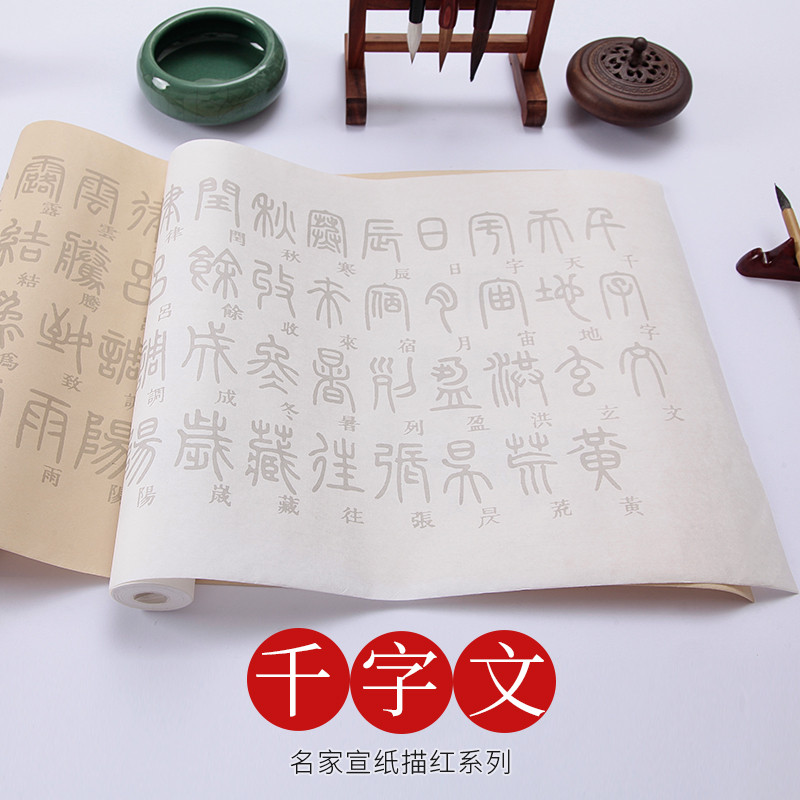 千字文
天地玄黃
宇宙洪荒
日月盈昃
辰宿列張
寒來暑往
秋收冬藏
閏餘成歲
律呂調陽
雲騰致雨
露結為
千字文
名家宣纸描红系列